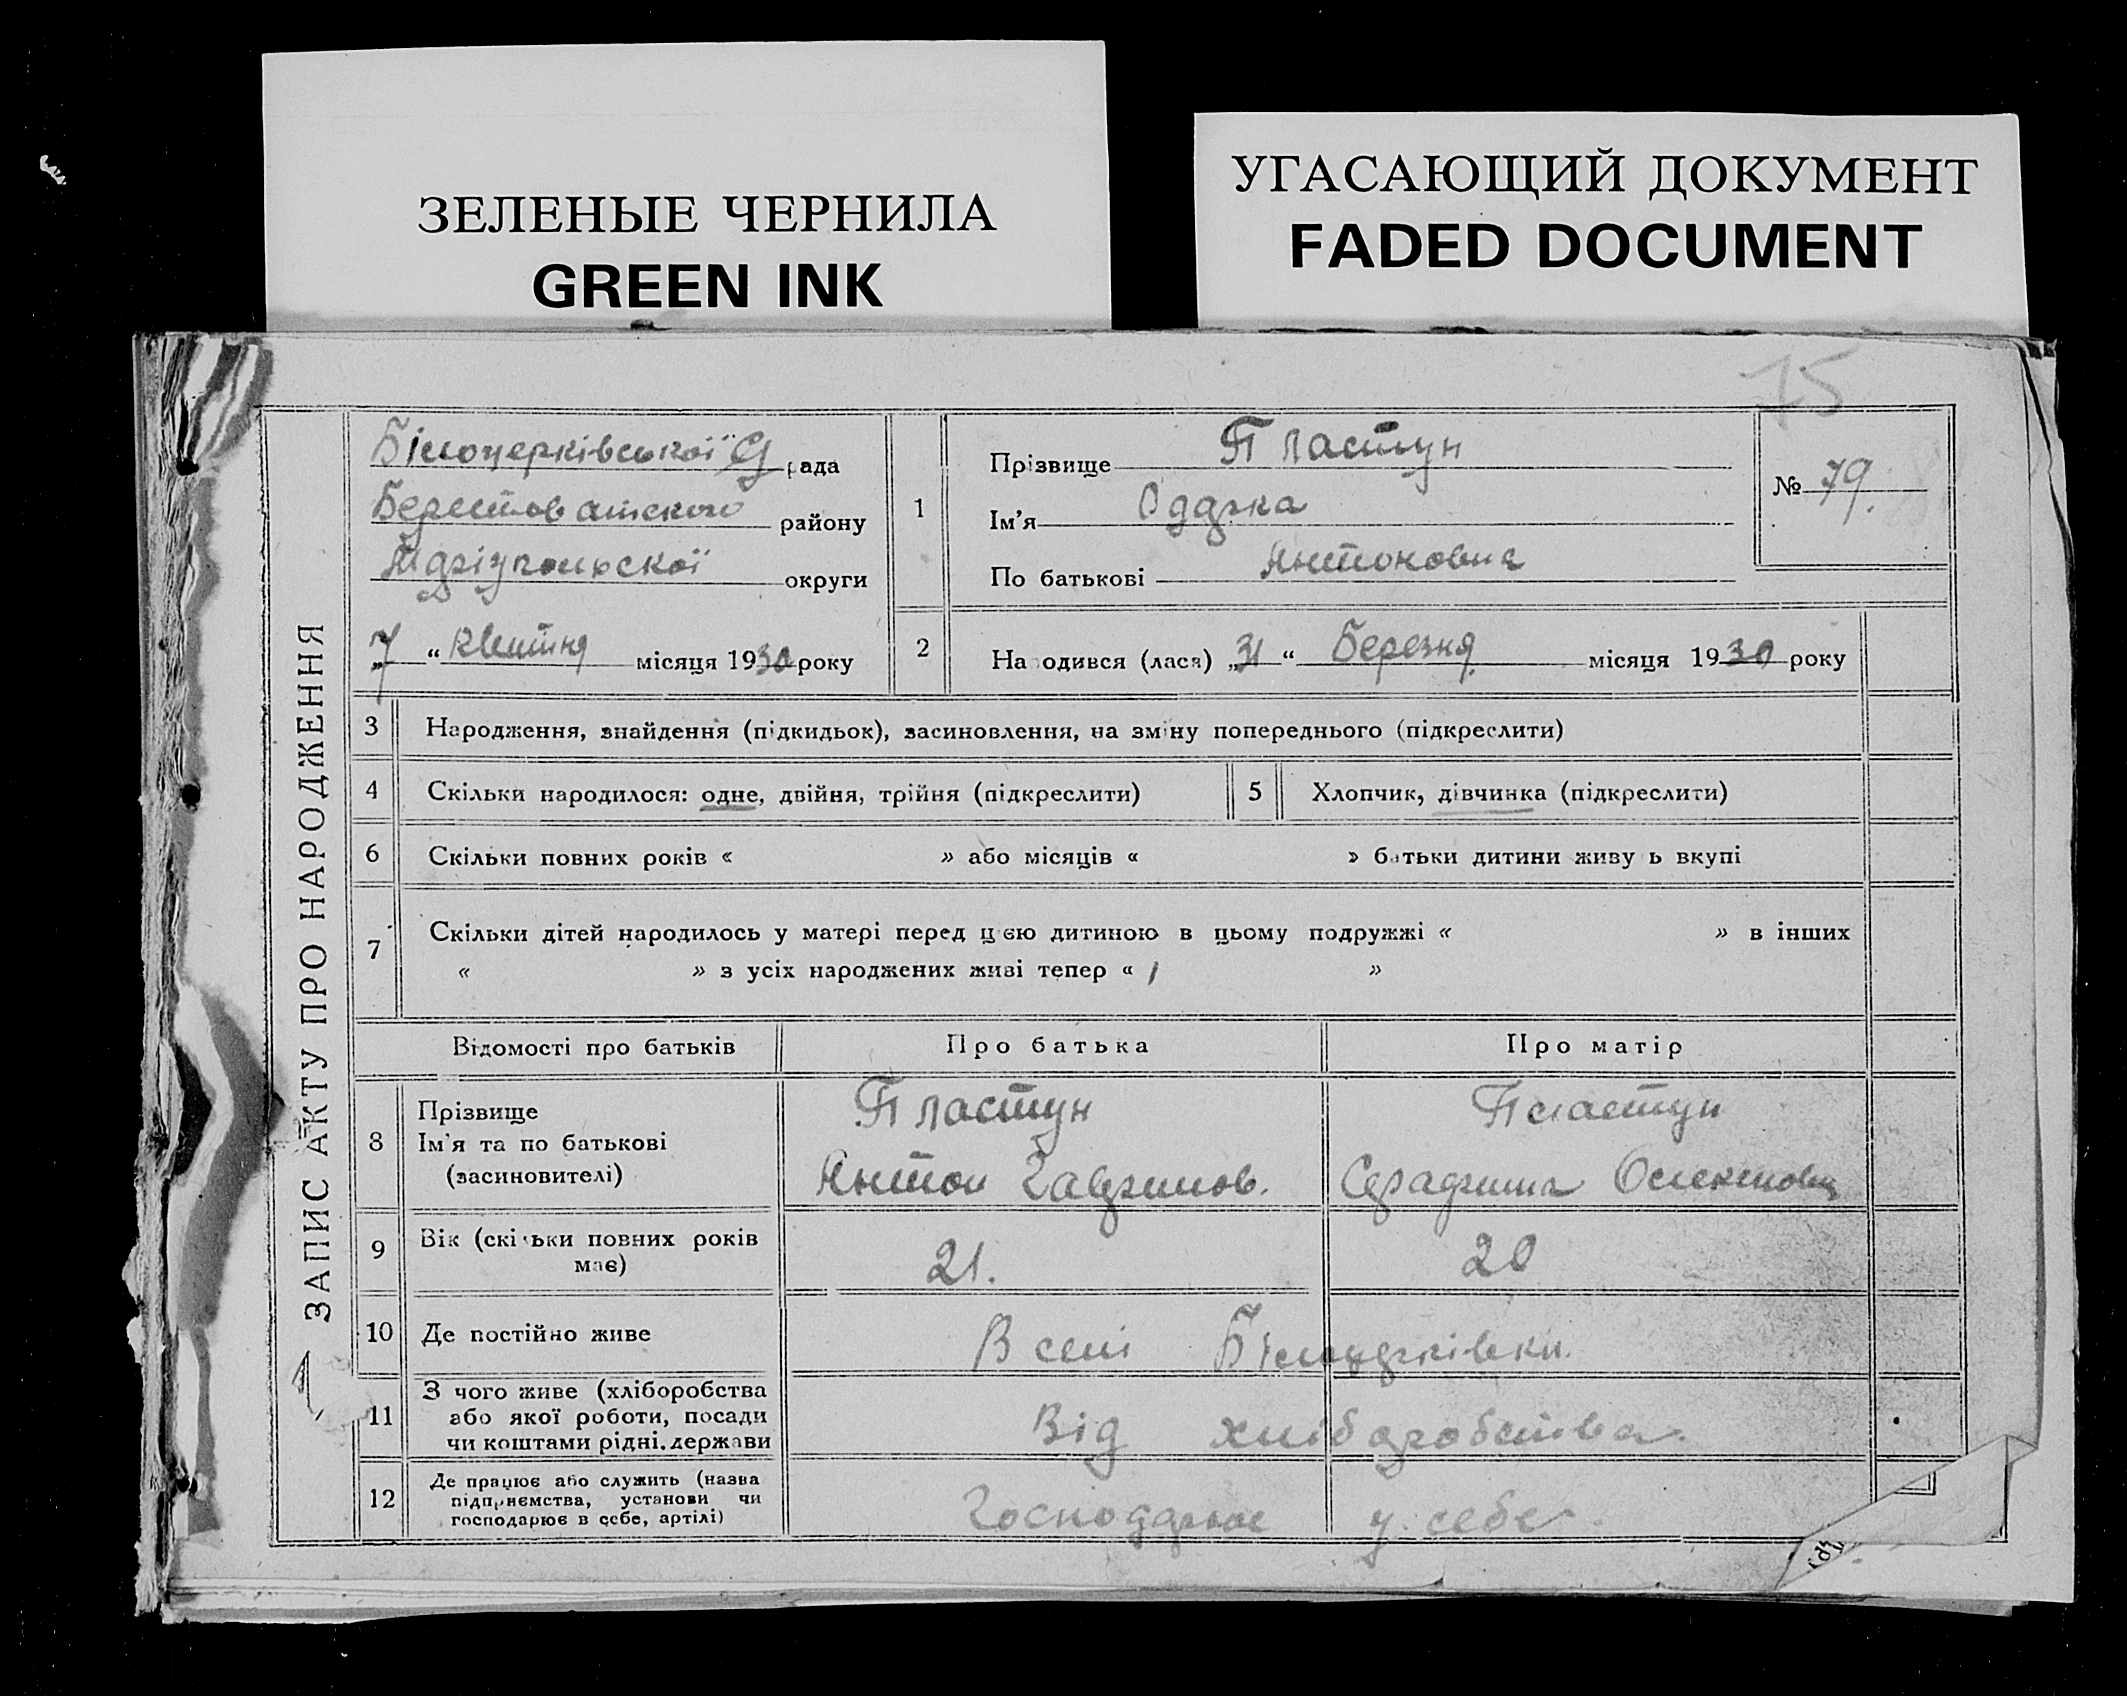 ЗЕЛЕНЫЕ ЧЕРНИЛА
GREEN INK
УГАСАЮЩИЙ ДОКУМЕНТ
FADED DOCUMENT
75
ЗАПИС АКТУ ПРО НАРОДЖЕННЯ
Білоцерківської С рада
Берестоватского району
Маріупольскої округи
„7“ квітня місяця 1930 року
1
Прізвище Пластун
Ім'я Одарка
По батькові Антоновна
№ 79.
2
Народився (лася) „31“ Березня місяця 1930 року
3 Народження, знайдення (підкидьок), засиновлення, на зміну попереднього (підкреслити)
4 Скільки народилося: одне, двійня, трійня (підкреслити)
5 Хлопчик, дівчинка (підкреслити)
6 Скільки повних років « » або місяців « » батьки дитини живу ь вкупі
7 Скільки дітей народилось у матері перед цією дитиною в цьому подружжі « » в інших
« » з усіх народжених живі тепер « 1 »
Відомості про батьків Про батька Про матір
8 Прізвище
Ім'я та по батькові
(засиновителі)
Пластун
Антон Гаврилов.
Пластун
Серафима
9 Вік (скільки повних років
має)
21. 20
10 Де постійно живе В селі Білоцерківки.
11 З чого живе (хліборобства
або якої роботи, посади
чи коштами рідні, держави
Від хліборобства.
12 Де працює або служить (назва
підприємства, установи чи
господарює в себе, артілі)
Господарює у себе.